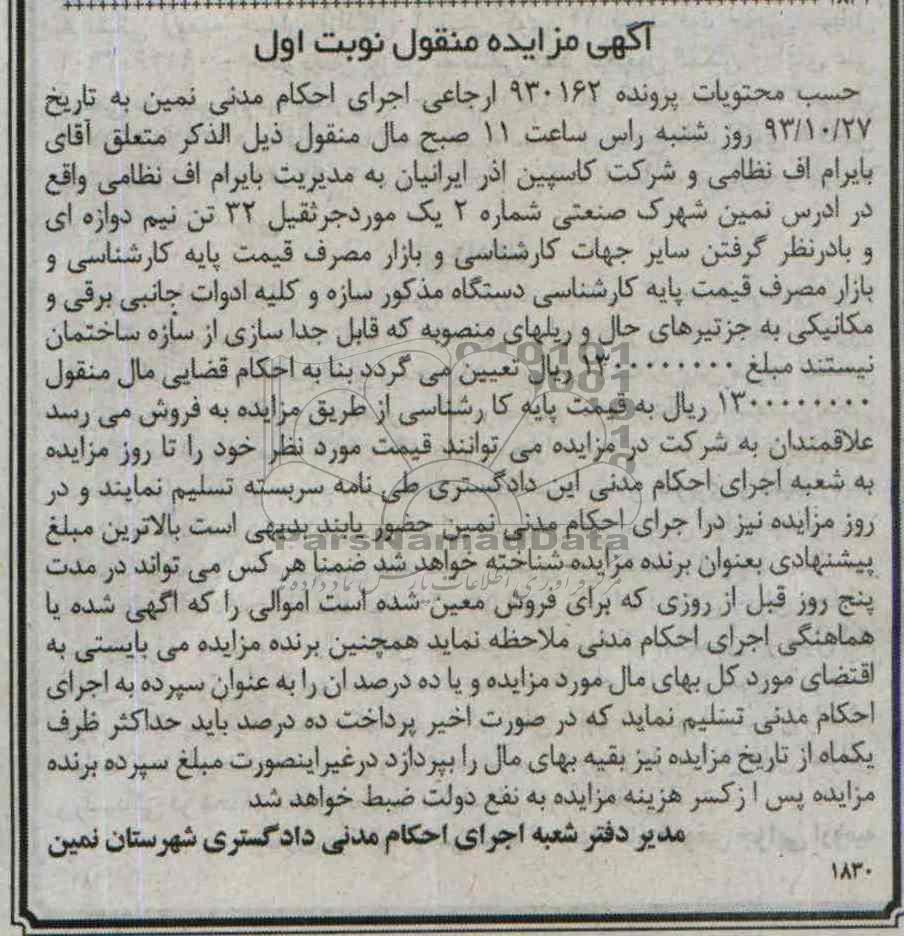 آگهی مزایده منقول نوبت اول
حسب محتویات پرونده ۹۳۰۱۶۲ ارجاعی اجرای احکام مدنی نمین به تاریخ
۹۳/۱۰/۲۷ روز شنبه راس ساعت ۱۱ صبح مال منقول ذیل الذکر متعلق آقای
بایرام اف نظامی و شرکت کاسپین اذر ایرانیان به مدیریت بایرام اف نظامی واقع
در ادرس نمین شهرک صنعتی شماره ۲ یک موردجرثقیل ۳۲ تن نیم دوازه ای
و بادرنظر گرفتن سایر جهات کارشناسی و بازار مصرف قیمت پایه کارشناسی و
بازار مصرف قیمت پایه کارشناسی دستگاه مذکور سازه و کلیه ادوات جانبی برقی و
مکانیکی به جزتیرهای حال و ریلهای منصوبه که قابل جدا سازی از سازه ساختمان
نیستند مبلغ ۱۳۰۰۰۰۰۰۰۰ ریال تعیین می گردد بنا به احکام قضایی مال منقول
۱۳۰۰۰۰۰۰۰۰ ریال به قیمت پایه کا رشناسی از طریق مزایده به فروش می رسد
علاقمندان به شرکت در مزایده می توانند قیمت مورد نظر خود را تا روز مزایده
به شعبه اجرای احکام مدنی این دادگستری طی نامه سربسته تسلیم نمایند و در
روز مزایده نیز درا جرای احکام مدنی نمین حضور یابند بدیهی است بالاترین مبلغ
پیشنهادی بعنوان برنده مزایده شناخته خواهد شد ضمنا هر کس می تواند در مدت
پنج روز قبل از روزی که برای فروش معین شده است اموالی را که اگهی شده یا
هماهنگی اجرای احکام مدنی ملاحظه نماید همچنین برنده مزایده می بایستی به
اقتضای مورد کل بهای مال مورد مزایده و یا ده درصد ان را به عنوان سپرده به اجرای
احکام مدنی تسلیم نماید که در صورت اخیر پرداخت ده درصد باید حداکثر ظرف
یکماه از تاریخ مزایده نیز بقیه بهای مال را بپردازد درغیراینصورت مبلغ سپرده برنده
مزایده پس ا زکسر هزینه مزایده به نفع دولت ضبط خواهد شد
مدیر دفتر شعبه اجرای احکام مدنی دادگستری شهرستان نمین
۱۸۳۰
ParsNamadData